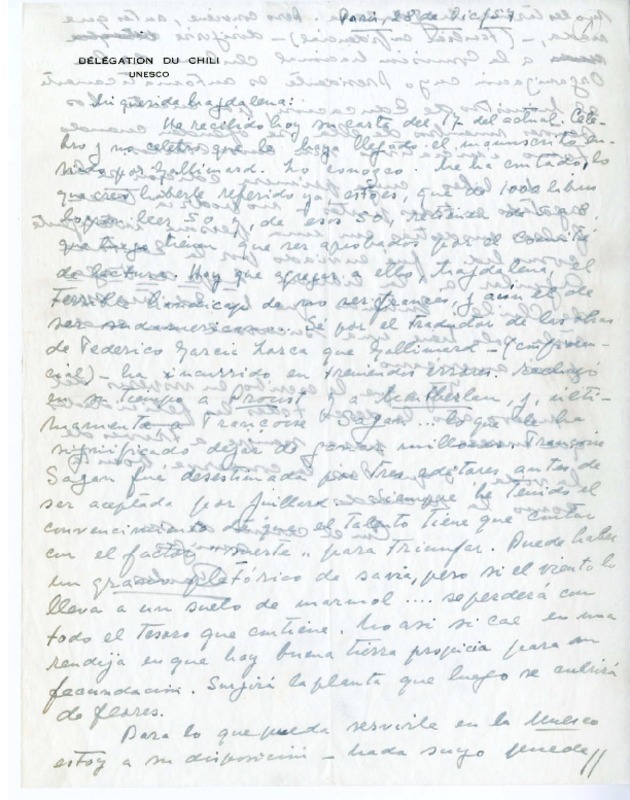 París, 28 de Dic/57
DÉLÉGATION DU CHILI
UNESCO
Mi querida Magdalena:
He recibido hoy su carta del 17 del actual. Cele-
bro y no celebro que le haya llegado el manuscrito en-
viado por Gallimard. Lo conozco. Me ha contado, lo
que creo haberle referido ya, esto es, que de 1000 libros
logran leer 50 y, de esos 50,
que tienen que ser aprobados por el comité
de lectura. Hay que agregar a ello, Magdalena, el
terrible handicap de no ser francés, y aún el de
ser sudamericano... Sé por el traductor de las obras
de Federico García Lorca que Gallimard - (confiden-
cial) - ha incurrido en tremendos errores. Rechazó
en su tiempo a Proust y a Montherlan, y, últi-
mamente a Françoise Sagan... lo que le ha
significado dejar de ganar millones. Françoise
Sagan fué desestimada por tres editores, antes de
ser aceptada por Juillard. Siempre he tenido el
convencimiento de que el talento tiene que contar
con el factor "suerte" para triunfar. Puede haber
un grano pletórico de savia, pero si el viento lo
lleva a un suelo de marmol .... se perderá con
todo el tesoro que contiene. No así si cae en una
rendija en que hay buena tierra propicia para su
fecundación. Surgirá la planta que luego se cubrirá
de flores.
Para lo que pueda servirle en la Unesco
estoy a su disposición - nada suyo puede //